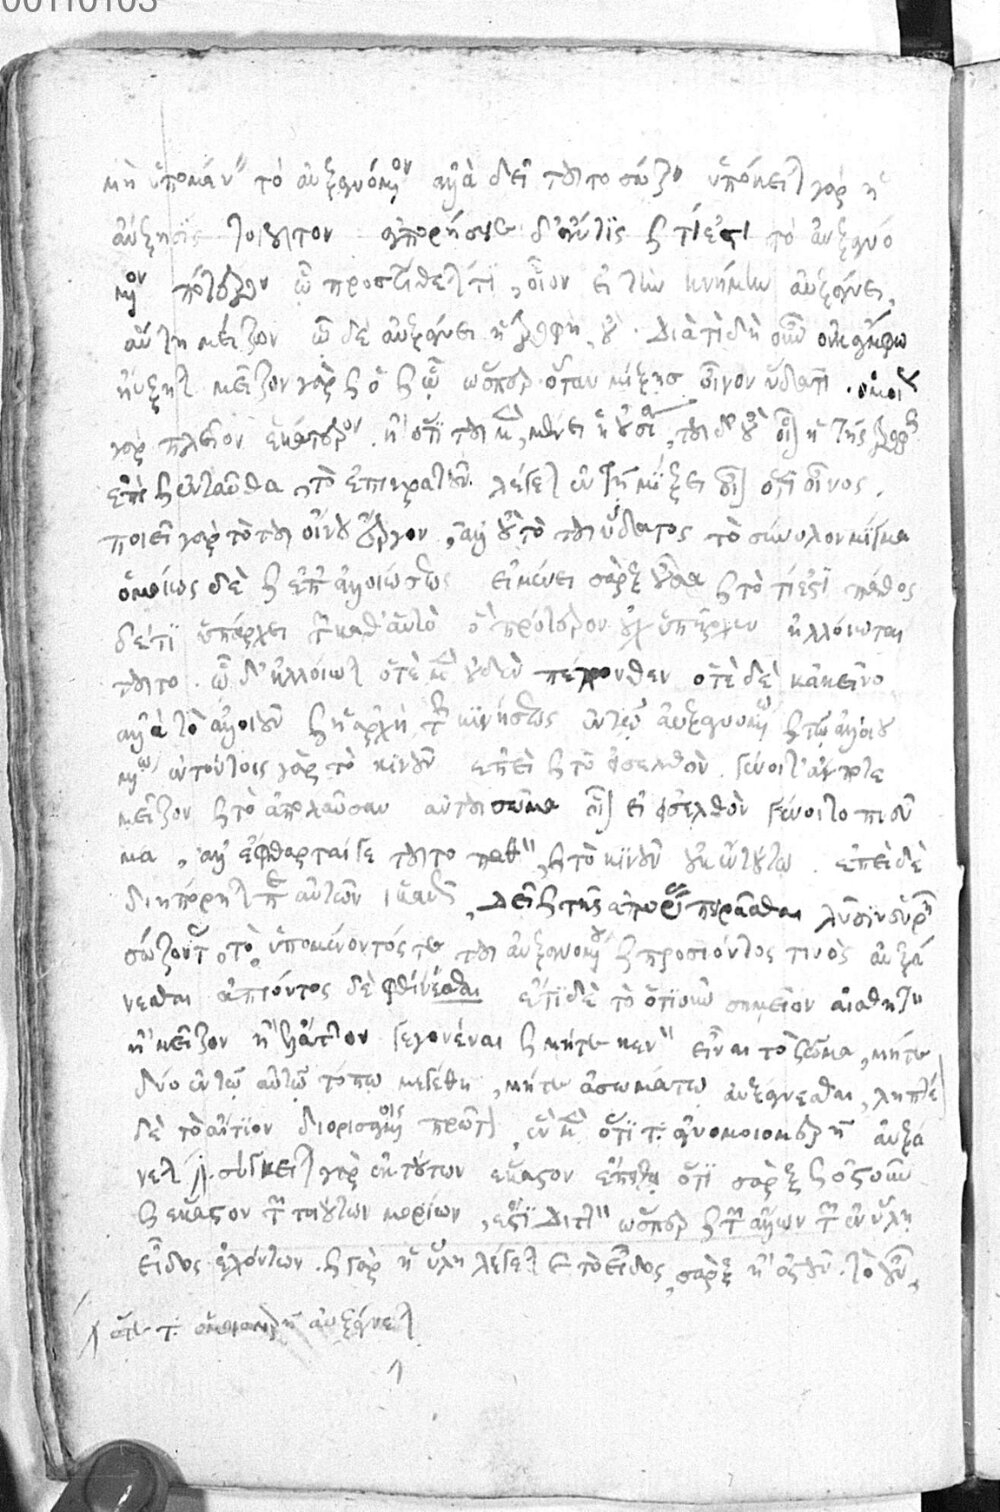 μὴ ὑπομένειν τὸ αὐξανόμενον ἀλλὰ δεῖ τοῦτο σώζειν ὑπόκειται γὰρ ἡ
αὔξησις τοιοῦτον ἀπορήσειε δ' ἄν τις καὶ τί ἐστι τὸ αὐξανό
μενον πότερον ὧ προστίθεταί τι, οἷον εἰ τὴν κνήμην αὐξάνει,
αὕτη μείζων ὧ δὲ αὐξάνει ἡ τροφὴ, οὔ. Διὰ τί δὴ οὖν οὐκ ἄμφω
ηὔξηται μεῖζον γὰρ καὶ ὃ καὶ ὧ ὥσπερ ὅταν μίξῃς οἶνον ὕδατι. ὁμοίως
γὰρ πλεῖον ἑκάτερον. ἢ ὅτι τοῦ μὲν, μένει ἡ οὐσία, τοῦ δ' οὒ οἷον ἡ τῆς τροφῆς
ἐπεὶ καὶ ἐνταῦθα, τὸ ἐπικρατοῦν λέγεται ἐν τῇ μίξει οἷον ὅτι οἶνος.
ποιεῖ γὰρ τὸ τοῦ οἴνου ἔργον, ἀλλ' οὐ τὸ τοῦ ὕδατος τὸ σύνολον μῖγμα
ὁμοίως δὲ καὶ ἐπ' ἀλλοιώσεως εἰ μένει σὰρξ οὖσα καὶ τὸ τί ἐστι πάθος
δέ τι ὑπάρχει τῶν καθ' αὑτὸ ὃ πρότερον οὐχ ὑπῆρχεν ἠλλοίωται
τοῦτο. ὧ δ' ἠλλοίωται ὁτὲ μὲν οὐδὲν πέπονθεν ὁτὲ δὲ κἀκεῖνο
ἀλλὰ τὸ ἀλλοιοῦν καὶ ἡ ἀρχὴ τῆς κινήσεως ἐν τῷ αὐξανομένῳ καὶ τῷ ἀλλοιου
μένῳ ἐν τούτοις γὰρ τὸ κινοῦν ἐπεὶ καὶ τὸ εἰσελθὸν γένοιτ' ἄν ποτε
μεῖζον καὶ τὸ ἀπολαῦσαν αὐτοῦ σῶμα οἷον εἰ εἰσελθὸν γένοιτο πνεῦ
μα, ἀλλ' ἔφθαρταί γε τοῦτο παθὸν, καὶ τὸ κινοῦν οὐκ ἐν τούτῳ. ἐπεὶ δὲ
διηπόρηται περὶ αὐτῶν ἱκανῶς, Δεῖ καὶ τῆς ἀπορίας πειρᾶσθαι λύσιν εὑρεῖν
σώζοντας τὸ ὑπομένοντός τε τοῦ αὐξανομένου καὶ προσιόντος τινὸς αὐξά
νεσθαι ἀπιόντος δὲ φθίνεσθαι ἔτι δὲ τὸ ὁτιοῦν σημεῖον αἰσθητὸν
ἢ μεῖζον ἢ ἔλαττον γεγονέναι καὶ μήτε κενὸν εἶναι τὸ σῶμα, μήτε
δύο ἐν τῷ αὐτῷ τόπῳ μεγέθη, μήτε ἀσωμάτῳ αὐξάνεσθαι, ληπτέον
δὲ τὸ αἴτιον διορισαμένοις πρῶτον, ἓν μὲν ὅτι τὰ ἀνομοιομερῆ αὐξά
νεται σύγκειται γὰρ ἐκ τούτων ἕκαστον ἔπειθ' ὅτι σὰρξ καὶ ὀστοῦν
καὶ ἕκαστον τῶν τοιούτων μορίων, ἐστὶ Διττὸν ὥσπερ καὶ τῶν ἄλλων τῶν ἐν ὕλῃ
εἶδος ἐχόντων. καὶ γὰρ ἡ ὕλη λέγεται καὶ τὸ εἶδος, σὰρξ ἢ ὀστοῦν. τὸ οὖν,
ὅτι τὰ ὁμοιομερῆ αὐξάνεται